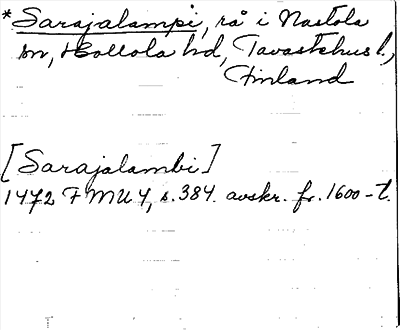 *Sarajalampi, rå i Nastola
sn, Hollola hd, Tavastehus l.,
Finland
[Sarajalambi]
1472 FMU 4, s. 384. avskr. fr. 1600-t.